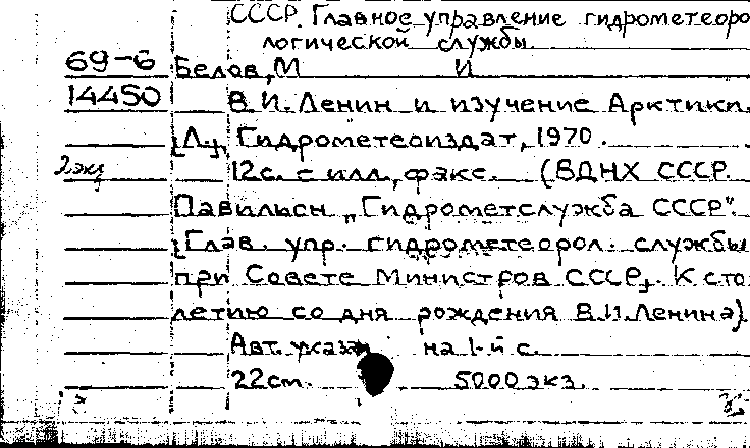 СССР. Главное управление гидрометеоро
логической службы.
69-6 Белов, М И
14450 В.И. Ленин и изучение Арктики.
[Л.], Гидрометеоиздат, 1970.
2 экз 12 с. с илл., факс. (ВДНХ СССР.
Павильон „Гидрометслужба СССР".
[Глав. упр. гидрометеорол. службы
при Совете Министров СССР]. К сто
летию со дня рождения В.И. Ленина)
Авт. указан на 1-й с.
22 см. 5000 экз.